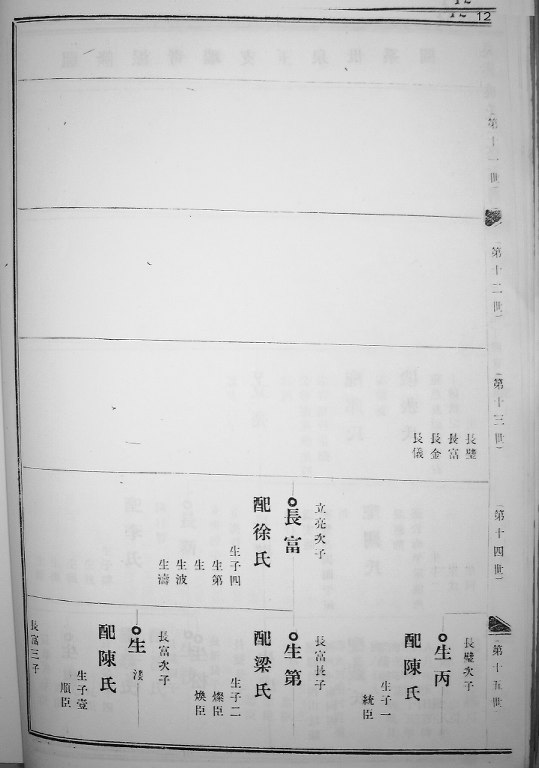 12
第十一世
第十二世
第十三世
長璧
長富
長金
長儀
第十四世
立亮次子
長富
配徐氏
生子四
生第
生
生波
生濤
第十五世
長璧次子
生丙
配陳氏
生子一
統臣
長富長子
生第
配梁氏
生子二
燦臣
煥臣
長富次子
生
配陳氏
生子壹
順臣
長富三子